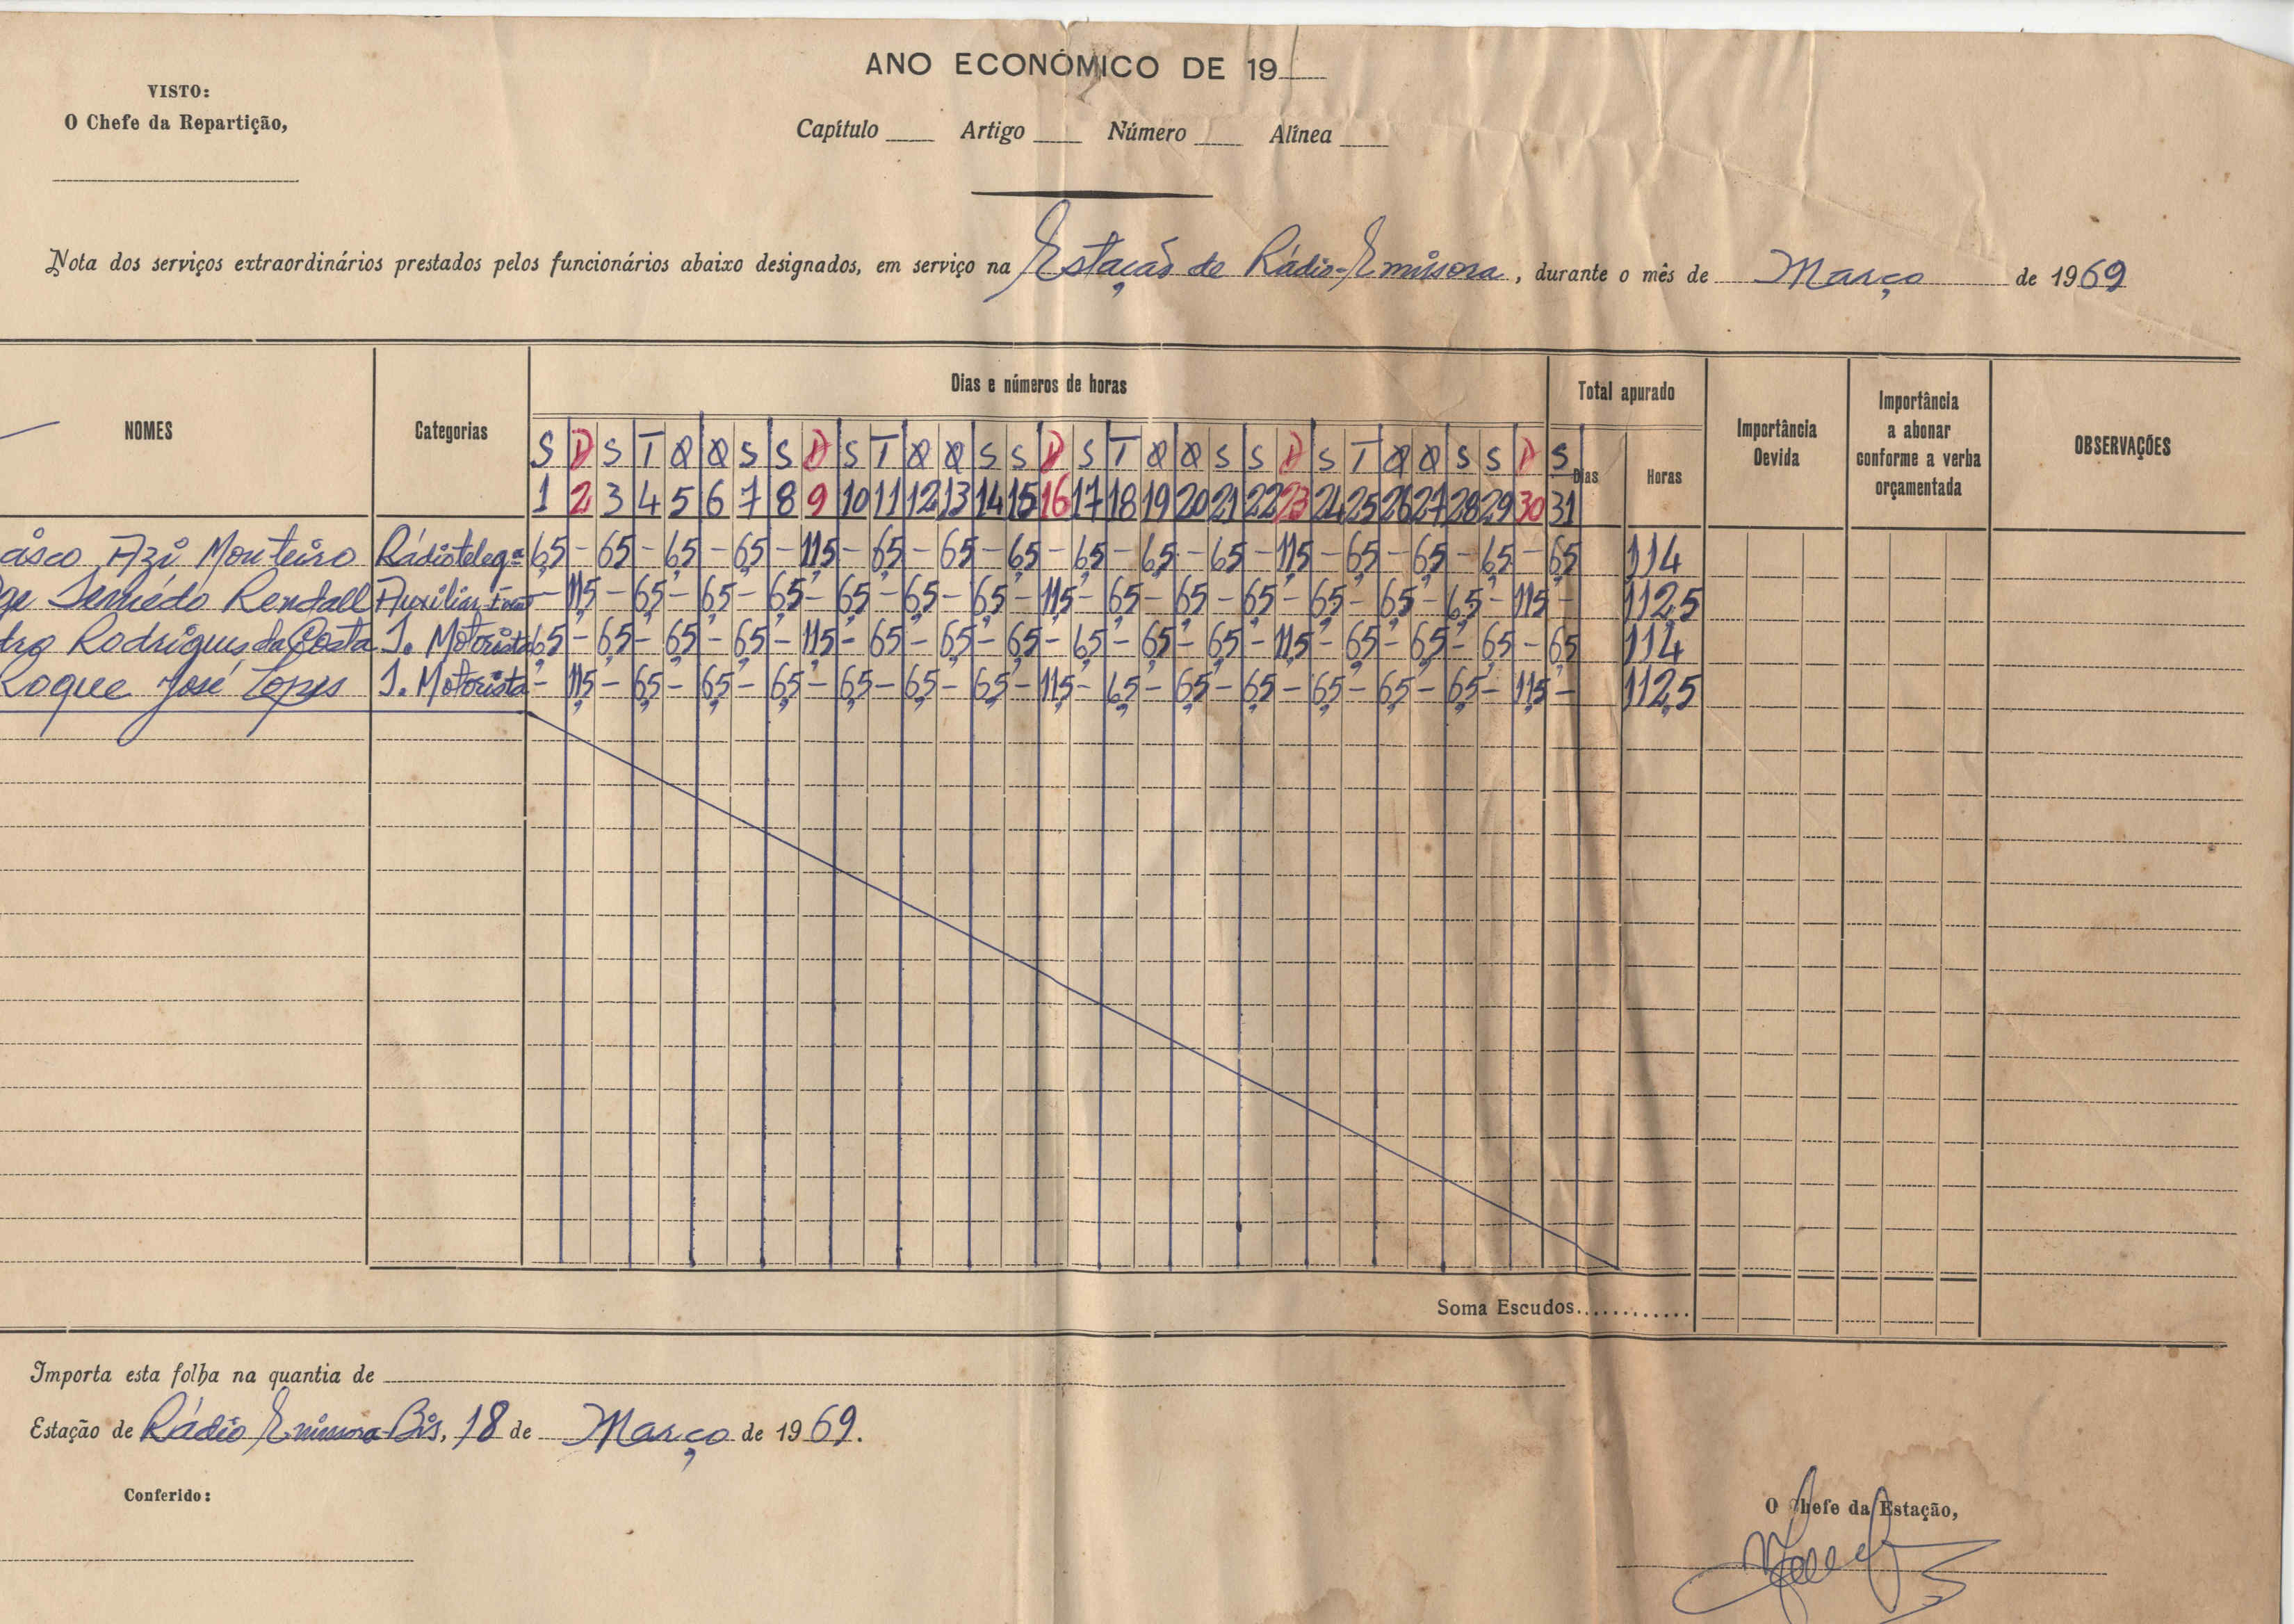 ANO ECONÓMICO DE 19
VISTO:
O Chefe da Repartição,
Capítulo Artigo Número Alínea
Nota dos serviços extraordinários prestados pelos funcionários abaixo designados, em serviço na Estação de Rádio-Emissora, durante o mês de Março de 1969
NOMES Categorias Dias e números de horas Total apurado Importância Devida Importância a abonar conforme a verba orçamentada OBSERVAÇÕES
S D S T Q Q S S D S T Q Q S S D S T Q Q S S D S T Q Q S S D S Dias Horas
1 2 3 4 5 6 7 8 9 10 11 12 13 14 15 16 17 18 19 20 21 22 23 24 25 26 27 28 29 30 31
Monteiro Rádioteleg.a 6,5 - 6,5 - 6,5 - 6,5 - 11,5 - 6,5 - 6,5 - 6,5 - 6,5 - 6,5 - 6,5 - 11,5 - 6,5 - 6,5 - 6,5 - 6,5 114
Semedo Rendall Auxiliar - 11,5 - 6,5 - 6,5 - 6,5 - 6,5 - 6,5 - 6,5 - 11,5 - 6,5 - 6,5 - 6,5 - 6,5 - 6,5 - 6,5 - 11,5 - 112,5
dro Rodrigues da Costa 1. Motorista 6,5 - 6,5 - 6,5 - 6,5 - 11,5 - 6,5 - 6,5 - 6,5 - 6,5 - 6,5 - 6,5 - 11,5 - 6,5 - 6,5 - 6,5 - 6,5 114
Roque José Lopes 1. Motorista - 11,5 - 6,5 - 6,5 - 6,5 - 6,5 - 6,5 - 6,5 - 11,5 - 6,5 - 6,5 - 6,5 - 6,5 - 6,5 - 6,5 - 11,5 - 112,5
Soma Escudos............
Importa esta folha na quantia de
Estação de Rádio Emissora Bis, 18 de Março de 1969.
Conferido:
O Chefe da Estação,